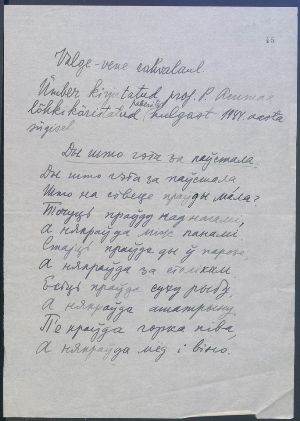 45
Valge-vene rahvalaul.
Ümber kirjutatud prof. P.
lõhki käristatud hulgast 1944. aasta
sügisel
Ды што гэта за паўстала,
Ды што гэта за паўстала
Што на свеце праўды мала?
Точуць праўду над намі,
А няпраўда між панамі
Стаіць праўда ды ў парозе,
А няпраўда за сталікам.
Есьць праўда суху рыбу,
А няпраўда
Пе праўда горка піва,
А няпраўда мёд і віно.